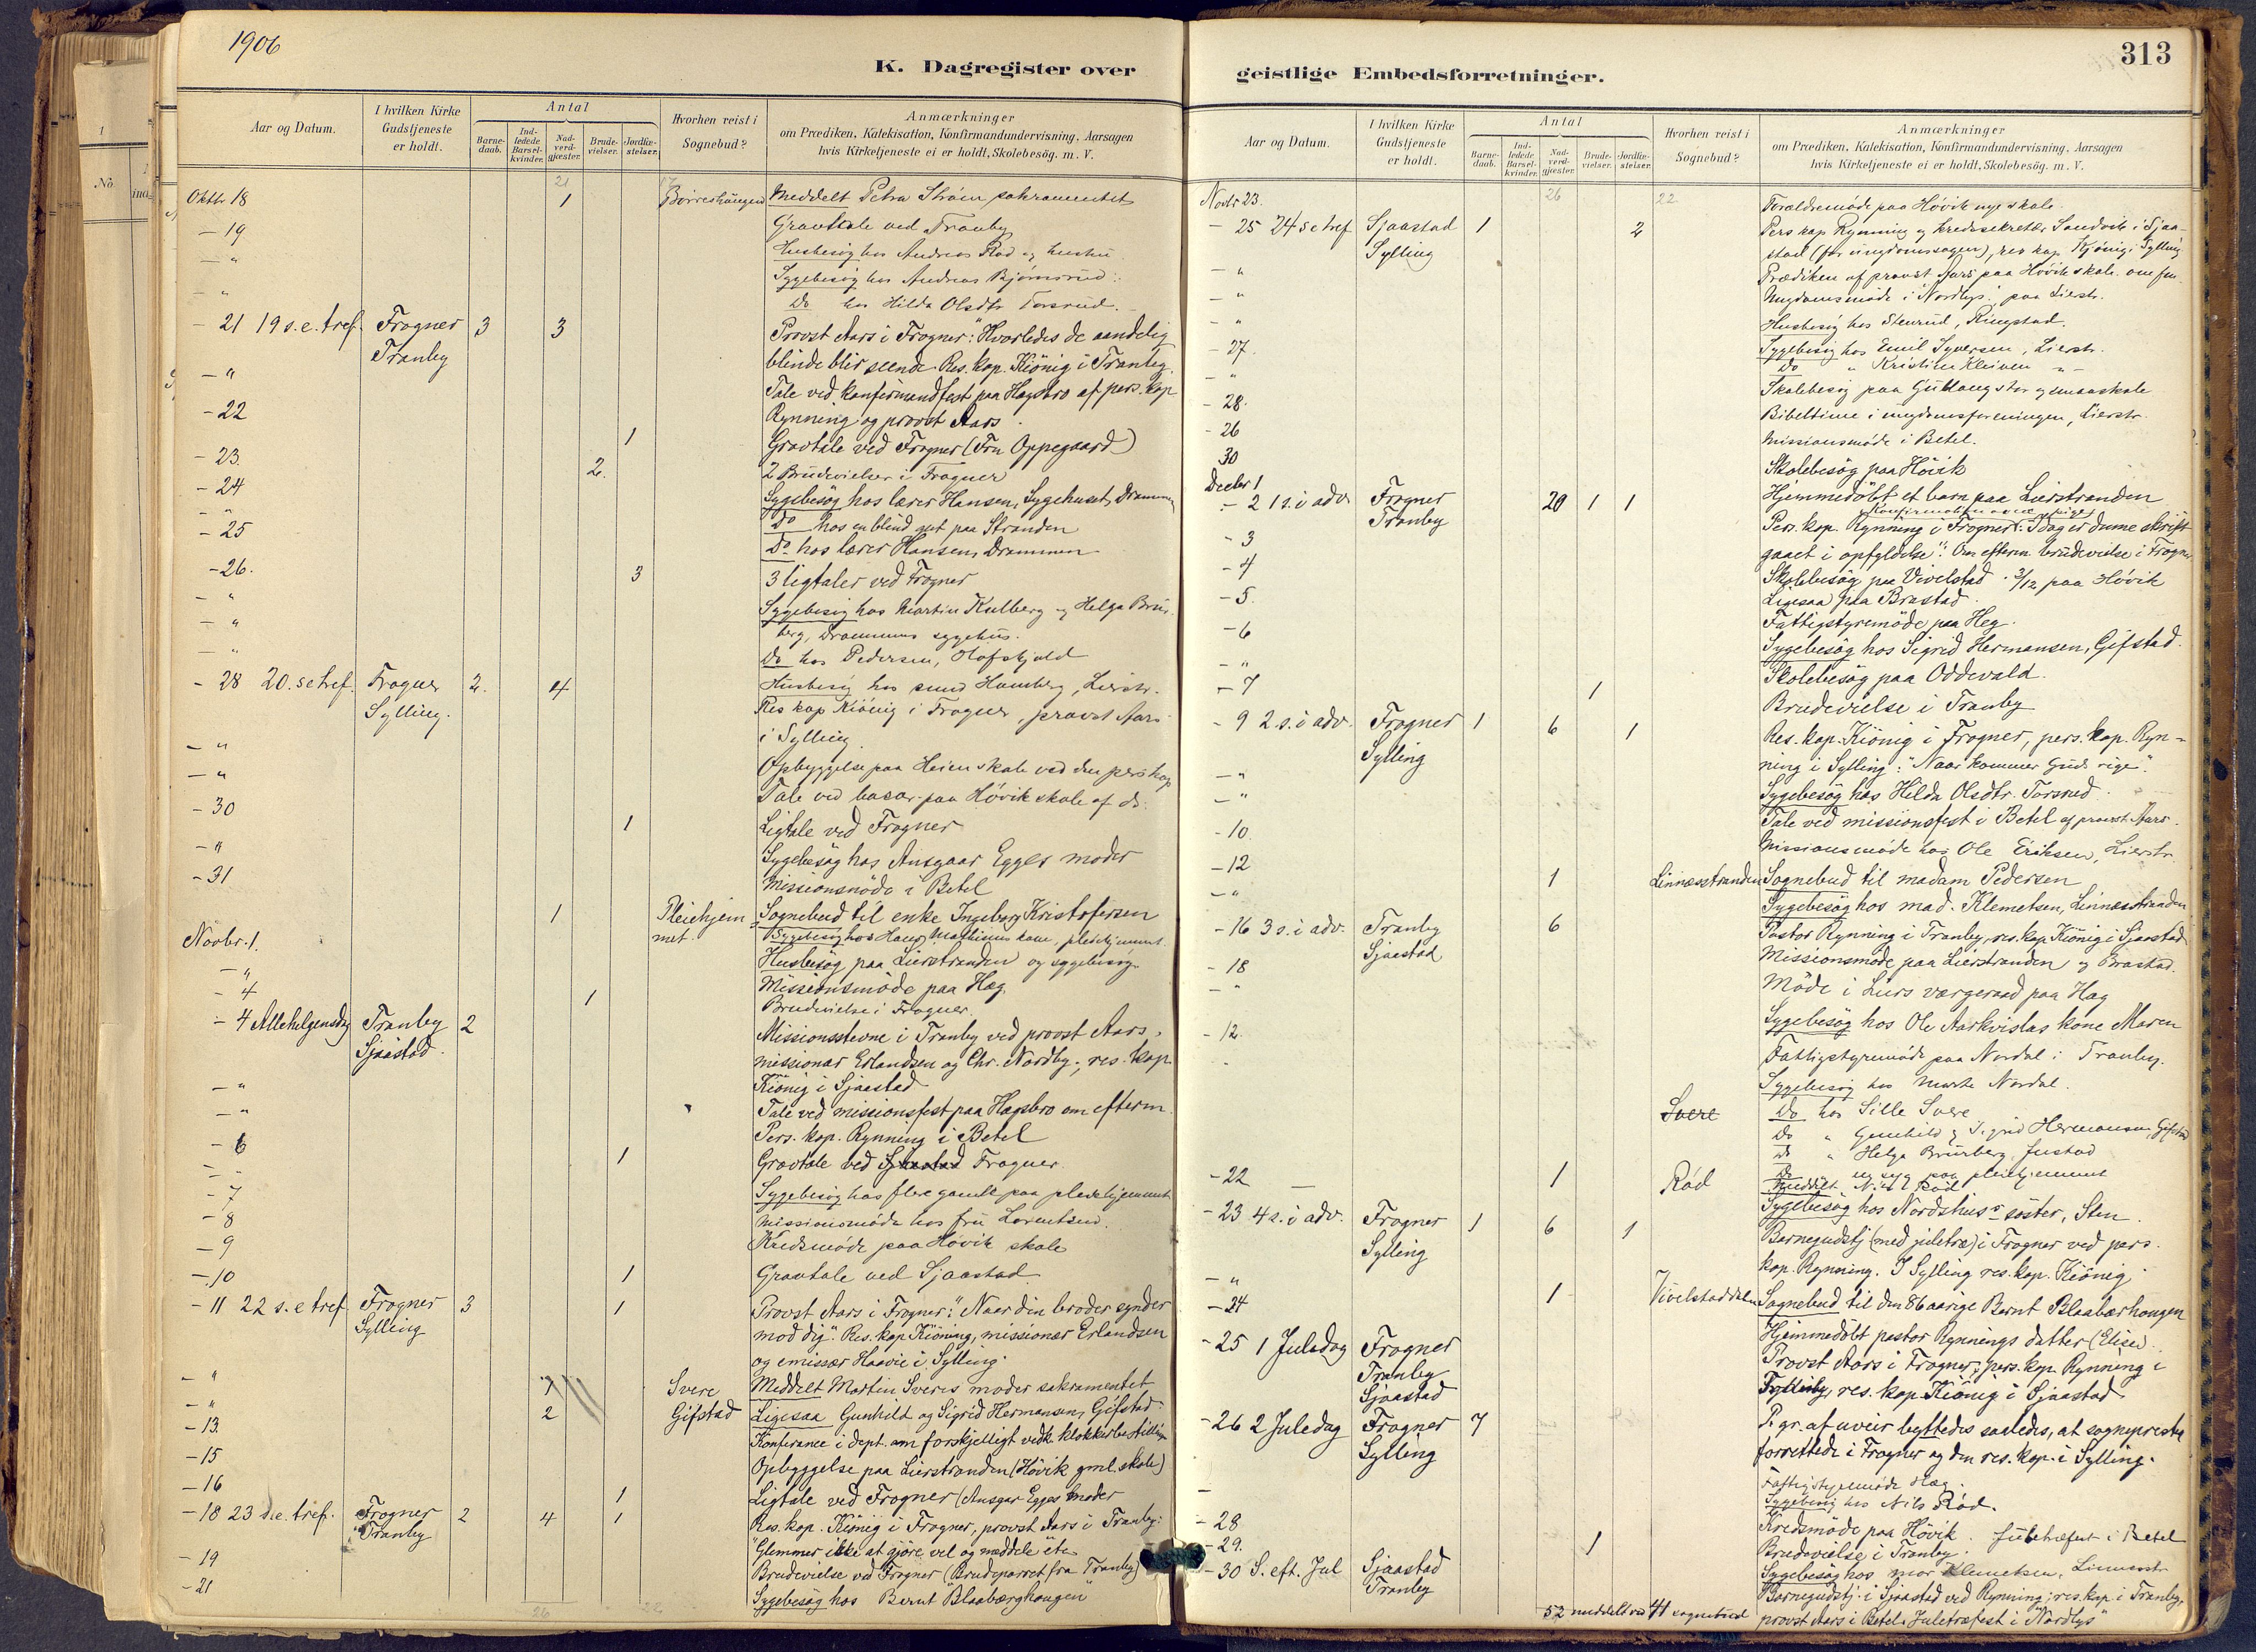 1906
K. Dagregister over
Aar og Datum.
I hvilken Kirke Gudstjeneste er holdt.
Antal
Barnedaab.
Indledede Barselkvinder.
Nadverdgjæster.
Brudevielser.
Jordfæstelser.
Hvorhen reist i Sognebud?
Anmærkninger
om Prædiken, Katekisation, Konfirmandundervisning, Aarsagen
hvis Kirketjeneste ei er holdt, Skolebesög. m. V.
21 17
Oktbr 18 1 Meddelt Petra Ström sakramentet
- 19 Gravtale ved Tranby
- " Husbesög hos Andreas Rød og hustru
Sygebesög hos Andreas Bjørnsrud.
- " Do hos Hilda Olsdtr Torsrud.
- 21 19 s. e. tref. Frogner 3 3 Provst Aars i Frogner: "Hvorledes de aandelig
Tranby blinde blir seende. Res. kap. Kiönig i Tranby.
- " Tale ved konfirmandfest paa Hagsbro af pers. kap
- 22 Rynning og provst Aars.
1 Gravtale ved Frogner (Fru Oppegaard)
- 23. 2. 2 Brudevielser i Frogner
- 24 Sygebesög hos lærer Hansen, Sygehuset, Drammen
- " Do hos en blind gut paa Stranden
- 25 Do hos lærer Hansen, Drammen
- 26. 3 3 ligtaler ved Frogner
- " Sygebesög hos Martin Kulberg og Helga Brus
- " berg, Drammens sygehus.
- " Do hos Pedersen, Olafskjold
- 28 20. s e tref. Frogner 2. 4 Husbesög hos Hamberg, Lierstr.
Sylling. Res kap Kiönig i Frogner, provst Aars
i Sylling.
- " Opbyggelse paa Heien skole ved den pers kap
- " Tale ved basar paa Hövik skole af ds.
- 30 1 Ligtale ved Frogner
- " Sygebesög hos Ansgaar Egges moder
- 31 Missionsmöde i Betel
1 Pleiehjemmet. Sognebud til enke Ingeborg Kristofersen
Novbr. 1. Sygebesög hos Hans Mathisens kone, pleiehjemmet.
- " Husbesög paa Lierstranden og sygebesög
- 4 Missionsmöde paa Hæg.
1 Brudevielse i Frogner.
- 4 Allehelgensdag Tranby 2 Missionsstevne i Tranby ved provst Aars,
Sjaastad. missionær Erlandsen og Chr. Nordby; res. kap
Kiönig i Sjaastad
- " Tale ved missionsfest paa Hagsbro om efterm.
- " Pers. kap. Rynning i Betel
- 6 1 Gravtale ved Sjaastad Frogner.
- 7 Sygebesög hos flere gamle paa pleiehjemmet
- 8 Missionsmöde hos fru Lorentsen.
- 9 Kredsmöde paa Hövik skole
- 10 1 Gravtale ved Sjaastad
- 11 22 s. e tref Frogner 3 1 Provst Aars i Frogner: "Naar din broder synder
Sylling mod dig". Res. kap Kiöning, missionær Erlandsen
og emissær Haavie i Sylling.
- " 1 Svere Meddelt Martin Sveres moder sakramentet
- " 2 Gifstad Ligesaa Gunhild og Sigrid Hermansen, Gifstad.
- 13. Konferance i dept. om forskjelligt vedk. klokkerbestilling
- 15 Opbyggelse paa Lierstranden (Hövik gml. skole)
- 16 1 Ligtale ved Frogner (Ansgar Egges moder
- 18 23 s.e. tref. Frogner 2 4 1 Res. kap. Kiönig i Frogner, provst Aars i Tranby:
Tranby "Glemmer ikke at gjöre vel og meddele" etc
- 19 Brudevielse ved Frogner (Brudeparret fra Tranby)
- 21 Sygebesög hos Bernt Blaabærhaugen
26 22
geistlige Embedsforretninger.
313
Aar og Datum.
I hvilken Kirke Gudstjeneste er holdt.
Antal
Barnedaab.
Indledede Barselkvinder.
Nadverdgjæster.
Brudevielser.
Jordfæstelser.
Hvorhen reist i Sognebud?
Anmærkninger
om Prædiken, Katekisation, Konfirmandundervisning, Aarsagen
hvis Kirketjeneste ei er holdt, Skolebesög. m. V.
26 22
Novbr 23. Forældremöde paa Hövik nye skole.
- 25 24 s e tref Sjaastad 1 2 Pers kap Rynning og kredssekretær Sandvik i Sjaa-
Sylling stad (for ungdomssagen), res kap Kjönig i Sylling
- " Prædiken af provst Aars paa Hövik skole om fm
- " Ungdomsmöde i "Nordlys" paa Lierstr.
- " Husbesög hos Stenrud, Ringstad.
- 27. Sygebesög hos Emil Syversen, Lierstr.
- " Do " Kristine Kleiven "
- 28. Skolebesög paa Gullaug stor og smaaskole
- 26 Bibeltime i ungdomsforeningen, Lierstr.
30 Missionsmöde i Betel.
Decbr 1 Skolebesög paa Hövik
- 2 1 s. i adv Frogner 20 1 1 Hjemmedöbt et barn paa Lierstranden
Tranby Pers. kap. Rynning i Frogner: "I dag er denne skrift
- 3 gaaet i opfyldelse". Om efterm. brudevielse i Frogner
- 4 Skolebesög paa Vivelstad. 3/12 paa Hövik
- 5. Ligesaa paa Brastad.
- 6 Fattigstyremöde paa Heg.
- " Sygebesög hos Sigrid Hermansen, Gifstad.
- 7 Skolebesög paa Oddevald.
1 Brudevielse i Tranby
- 9 2. s. i adv. Frogner 1 6 1 Res. kap. Kiönig i Frogner, pers. kap. Ryn-
Sylling ning i Sylling: "Naar kommer Guds rige".
- " Sygebesög hos Hilda Olsdtr. Torsrud.
- " Tale ved missionsfest i Betel af provst Aars.
- 10. Missionsmöde hos Ole Eriksen, Lierstr.
- 12 1 Linnæsstranden Sognebud til madam Pedersen
- " Sygebesög hos mad. Klemetsen, Linnæsstranden
- 16 3 s. i adv. Tranby 6 Pastor Rynning i Tranby, res. kap Kiönig i Sjaastad
Sjaastad Missionsmöde paa Lierstranden og Brastad.
- 18 Möde i Liers værgeraad paa Hæg
- " Sygebesög hos Ole Aarkvislas kone Maren
- 12. Fattigstyremöde paa Nordal i Tranby.
Sygebesög hos Marte Nordal.
Svere Do hos Sille Svere
Do " Gunhild og Sigrid Hermansen, Gifstad
Do " Helga Brusberg, Justad
Do pleiehjemmet
- 22 1 Röd Meddelt Nils Röd
Sygebesög hos Nordshus's söster, Sten.
- 23 4 s. i adv. Frogner 1 6 1 Barnegudstj (med juletræ) i Frogner ved pers.
Sylling kap. Rynning. I Sylling res. kap. Kiönig.
- "
- 24 1 Vivelstaddalen Sognebud til den 86 aarige Bernt Blaabærhaugen
Hjemmedöbt pastor Rynnings datter (Elise).
- 25 1 Juledag Frogner Provst Aars i Frogner, pers. kap. Rynning i
Tranby
Sjaastad res. kap. Kiönig i Sjaastad
- 26 2 Juledag Frogner 7 P. gr. af uveir byttedes saaledes, at sognepresten
Sylling forrettede i Frogner og den res. kap. i Sylling.
Fattigstyremöde Hæg.
Sygebesög hos Nils Röd.
- 28 Kredsmöde paa Hövik. Juletræfest i Betel
- 29. 1 Brudevielse i Tranby.
- 30 S. eft. Jul Sjaastad Sygebesög hos mor Klemetsen, Linnesstr.
Tranby Barnegudstj. i Sjaastad ved Rynning; res. kap. i Tranby,
52 meddelt ved 41 sognebud provst Aars i Betel. Juletræfest i "Nordlys"